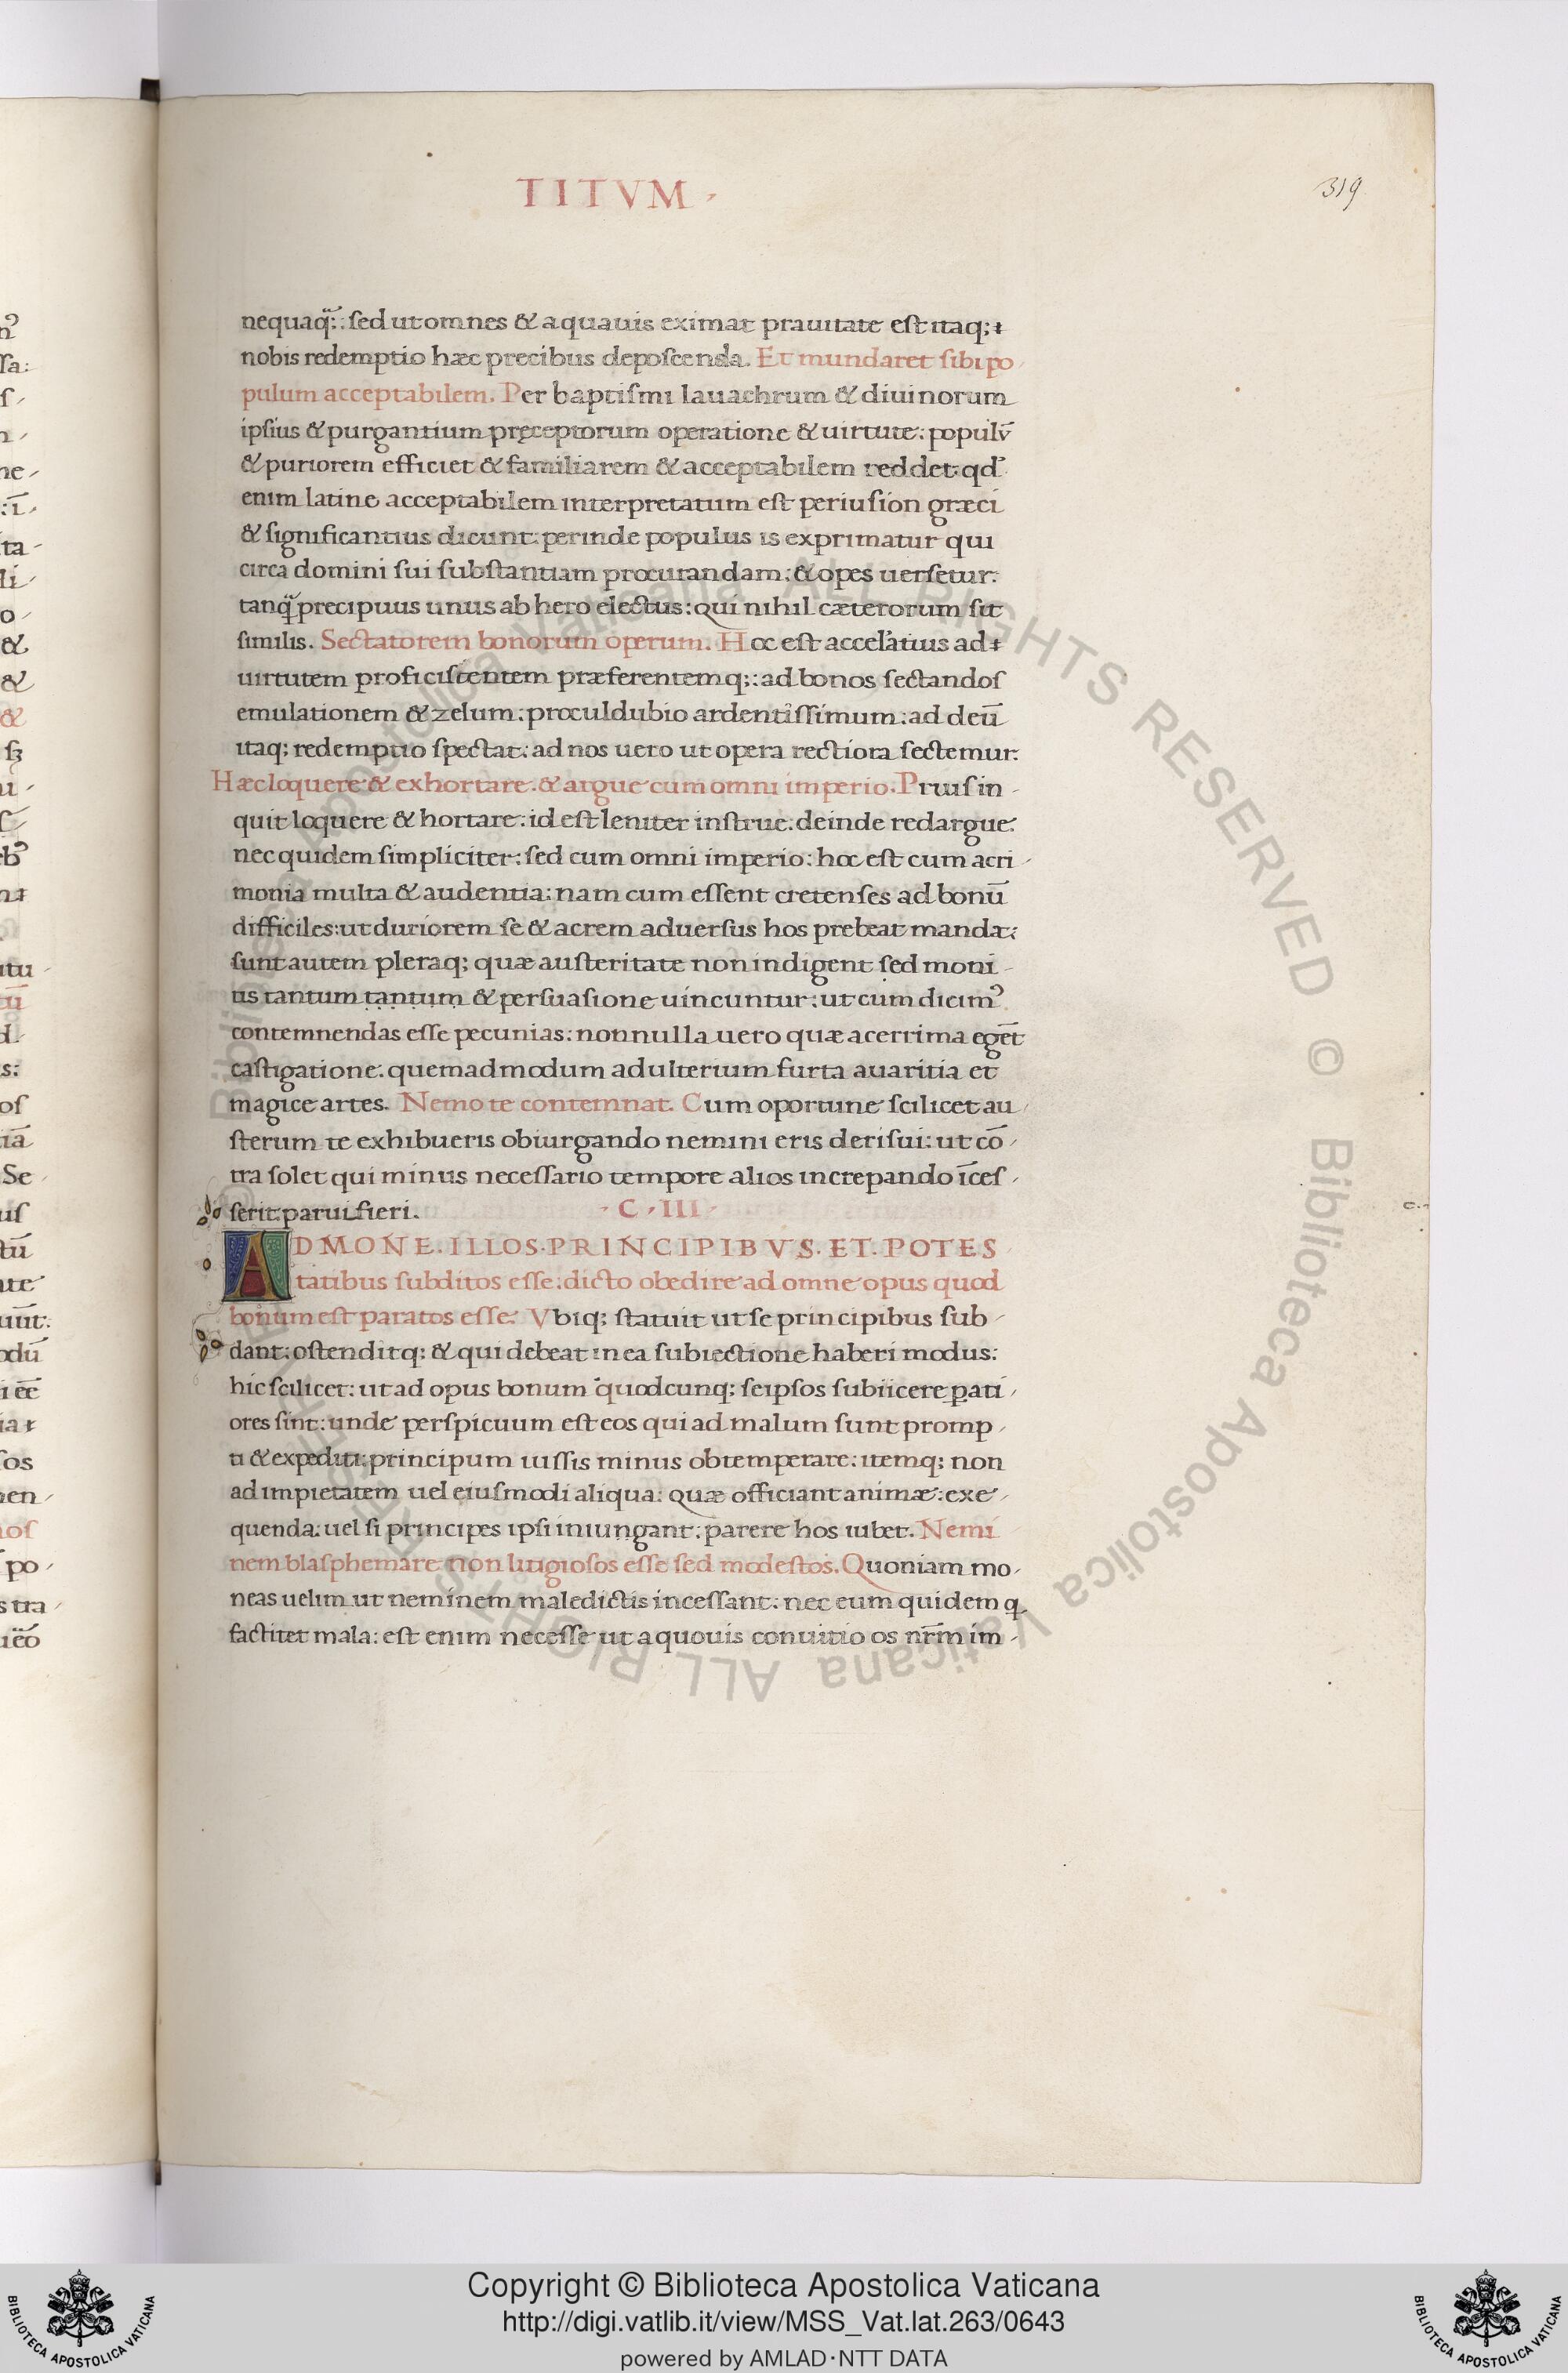 TITVM
319
nequaq̃: sed ut omnes & a quauis eximat prauitate est itaq;
nobis redemptio hæc precibus deposcenda. Et mundaret sibi po
pulum acceptabilem. Per baptismi lauachrum & diuinorum
ipsius & purgantium pręceptorum operatione & uirtute: populū
& puriorem efficiet & familiarem & acceptabilem reddet: qd̃
enim latine acceptabilem interpretatum est periusion græci
& significantius dicunt: perinde populus is exprimatur qui
circa domini sui substantiam procurandam: & opes uersetur:
tanq̃ precipuus unus ab hero electus: qui nihil cæterorum sit
similis. Sectatorem bonorum operum. Hoc est accelatius ad
uirtutem proficiscentem præferentemq;: ad bonos sectandos
emulationem & zelum: proculdubio ardentissimum: ad deū
itaq; redemptio spectat: ad nos uero ut opera rectiora sectemur.
Hæc loquere & exhortare. & argue cum omni imperio. Prius in
quit loquere & hortare: id est leniter instrue. deinde redargue:
nec quidem simpliciter: sed cum omni imperio: hoc est cum acri
monia multa & audentia: nam cum essent cretenses ad bonū
difficiles: ut duriorem se & acrem aduersus hos prebeat mandat:
sunt autem pleraq; quæ austeritate non indigent sed moni
tis tantum tantum & persuasione uincuntur: ut cum dicimꝰ
contemnendas esse pecunias: nonnulla uero quæ acerrima egēt
castigatione. quemadmodum adulterium furta auaritia et
magice artes. Nemo te contemnat. Cum oportune scilicet au
sterum te exhibueris obiurgando nemini eris derisui: ut cō
tra solet qui minus necessario tempore alios increpando īces
serit parui fieri. C. III.
ADMONE. ILLOS. PRINCIPIBVS. ET. POTES
tatibus subditos esse: dicto obedire ad omne opus quod
bonum est paratos esse. Vbiq; statuit ut se principibus sub
dant: ostenditq; & qui debeat in ea subiectione haberi modus:
hic scilicet: ut ad opus bonum quodcunq; seipsos subiicere ꝑati
ores sint: unde perspicuum est eos qui ad malum sunt promp
ti & expediti: principum iussis minus obtemperare: itemq; non
ad impietatem uel eiusmodi aliqua: quæ officiant animæ: exe
quenda: uel si principes ipsi iniungant: parere hos iubet. Nemi
nem blasphemare non litigiosos esse sed modestos. Quoniam mo
neas uelim ut neminem maledictis incessant: nec eum quidem q
factitet mala: est enim necesse ut a quouis conuitio os nr̄m im
Copyright © Biblioteca Apostolica Vaticana
http://digi.vatlib.it/view/MSS_Vat.lat.263/0643
powered by AMLAD·NTT DATA